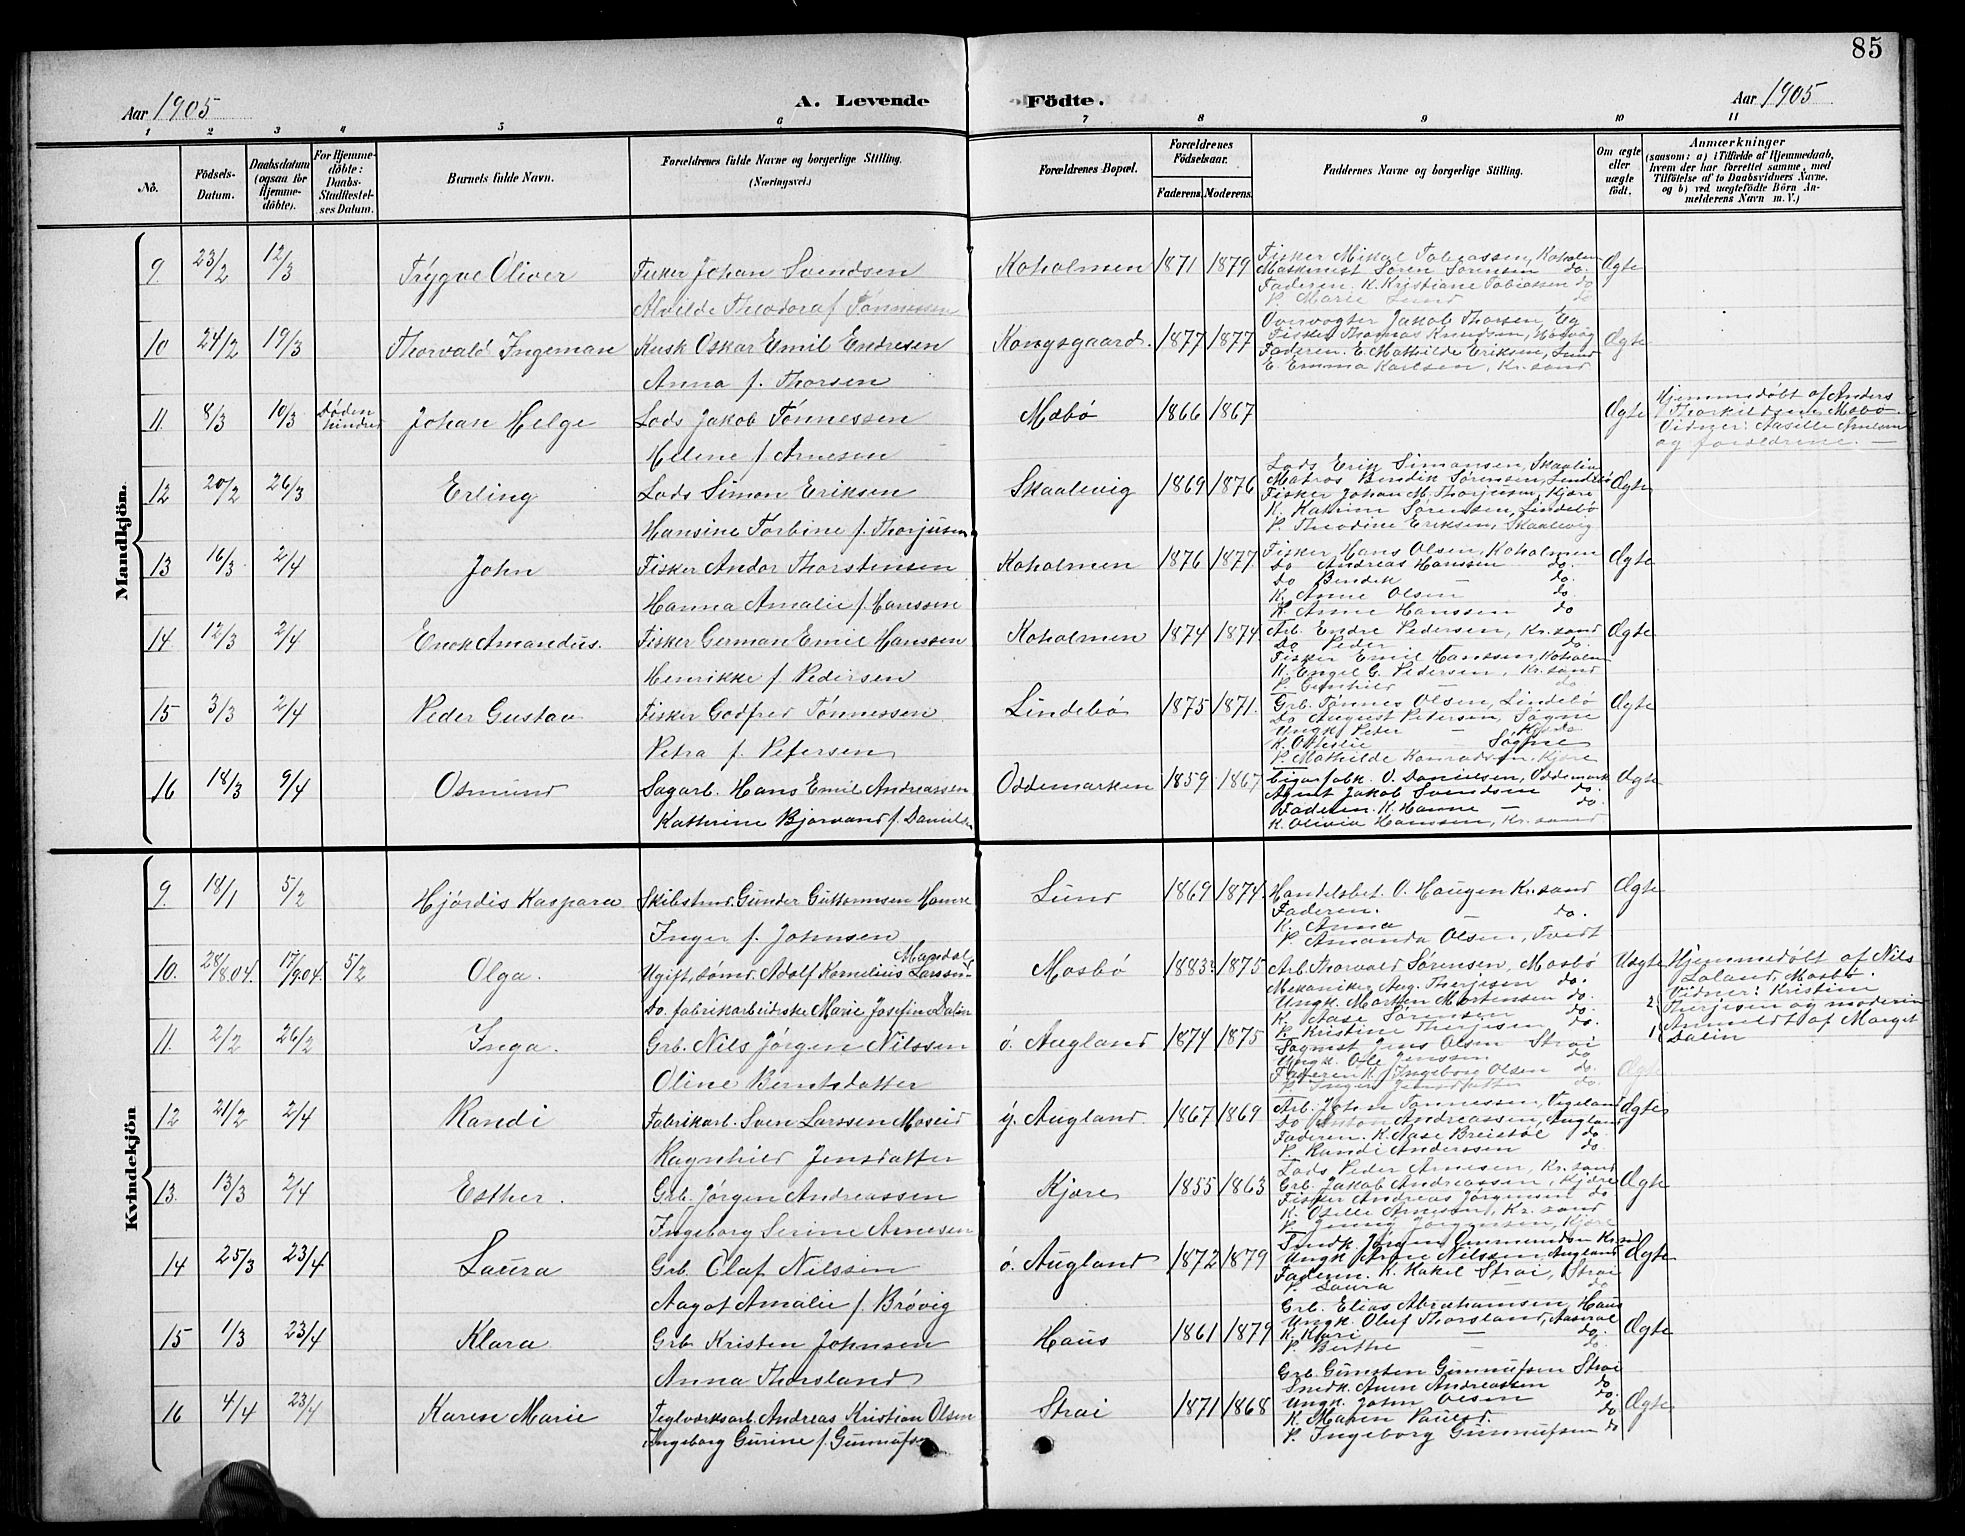 85
Aar 1905
A. Levende
Födte.
Aar 1905
1 2 3 4 5 6 7 8 9 10 11
No.
Födsels-Datum.
Daabsdatum (ogsaa for Hjemme-döbte).
For Hjemme-döbte: Daabs-Stadfæstel-ses Datum.
Barnets fulde Navn.
Forældrenes fulde Navne og borgerlige Stilling. (Næringsvei.)
Forældrenes Bopæl.
Forældrenes Födselsaar.
Faderens. Moderens.
Faddernes Navne og borgerlige Stilling.
Om ægte eller uægte födt.
Anmærkninger
(saasom: a) i Tilfælde af Hjemmedaab, hvem der har forrettet samme, med Tilföielse af to Daabsvidners Navne, og b) ved uegtefödte Börn An-melderens Navn m. V.)
Mandkjön.
9. 23/2 12/3 Trygve Oliver Fisker Johan Svendsen Koholmen 1871 1879 Ægte
Alvilde Theodora f Tønnessen
Fisker Mikal Tobiassen, Koholm
Maskinist Søren Sørensen do.
Faderen. K. Kristiane Tobiassen do
P. Marie Lund do
10 24/2 19/3 Thorvald Ingeman Kusk Oskar Emil Endresen Kongsgaard. 1877 1877 Ægte
Anna f. Thorsen
Opvogter Jakob Thorsen, Eg
Fisker Thomas Knudsen,
Faderen. E. Mathilde Eriksen, Lund
E. Emma Karlsen, Kr.sand
11. 8/3 10/3 Døden hindred Johan Helge Lods Jakob Tønnessen Mæbø 1866 1867 Ægte
Helene f Arnesen
Hjemmedøbt af Anders
Thorkildsen Mæbø.
Vidner: Aasille
og forældrene. —
12 20/2 26/3 Erling Lods Simon Eriksen Skaalevig 1869 1876 Ægte
Hansine Torbine f. Thorjusen
Lods Erik Simonsen, Skaalevig
Matros Bendik Sørensen, Lindebø
Fisker Johan M. Thorjusen, Kjære
K. Katrine Sørensen, Lindebø
P. Theodine Eriksen, Skaalevig
13 16/3 2/4 John Fisker Andor Thorstensen Koholmen 1876 1877 Ægte
Hanna Amalie f. Hanssen
Fisker Hans Olsen, Koholmen
Do Andreas Hanssen do.
Do Bendik — do.
K. Anne Olsen do.
K. Anne Hanssen do
14. 12/3 2/4 Enok Amandus. Fisker German Emil Hanssen Koholmen 1874 1874 Ægte
Henrikke f Pedersen
Arb. Endre Pedersen, Kr.sand
Do Peder — do.
Fisker Emil Hanssen, Koholm
K. Engel G. Pedersen, Kr.sand
P. Gunhild — do
15 3/3 2/4 Peder Gustav Fisker Godfred Tønnessen Lindebø 1875 1871. Ægte
Petra f. Petersen
Grb. Tønnes Olsen, Lindebø
Do August Petersen, Søgne
Ungk. Peter —
K. Otteslie Søgne
P. Mathilde Konradsen, Kjære
16 18/3 9/4 Osmund Sagarb. Hans Emil Andreassen Oddemarken 1859 1867 Ægte
Kathrine Bjorvand f. Danielsen
Cigarfabk. O. Danielsen, Oddemark
Agent Jakob Svendsen do.
Faderen. K. Hanne — do.
K. Olivia Hanssen, Kr.sand
Kvindekjön
9. 18/1 5/2 Hjørdis Kaspara Skibstmd. Gunder Guttormsen Hamre Lund 1869 1874. Ægte
Inger f. Johnsen
Handelsbet. O. Haugen Kr.sand
Faderen.
K. Anna — do.
P. Amanda Olsen, Tveit
10. 28/8.04. 17/9.04. 5/2 Olga. Ugift, sømd. Adolf Kornelius Larsen Mandal Mosbø 1883? 1875 Uægte
Do. fabrikarbeiderske Marie Josefine Dalin
Arb. Thorvald Sørensen, Mosbø
Mekaniker Aug. Therjesen do.
Ungk. Morthen Mortensen do.
K. Aase Sørensen do.
P. Kristine Therjesen do.
Hjemmedøbt af Nils
Loland, Mosbø.
Vidner: Kristine
Therjesen og moderen
Anmeldt af Marget
Dalin
11. 2/2 26/2 Inga. Grb. Nils Jørgen Nilssen ø. Augland 1874 1875 Ægte
Oline Berntsdatter
Sagmst. Jens Olsen Strai
Ungk. Ole Jenssen do
Faderen K. Ingeborg Olsen do.
P. Inger Jensdatter do.
12 21/2 2/4 Randi Fabrikarb. Sven Larssen Moseid y. Augland. 1867 1869 Ægte
Ragnhild Jensdatter
Arb. John Tønnessen, Vigeland
Do Anton Andreassen, Augland
Faderen. K. Aase Breistøl do.
P. Randi Anderssen do.
13. 13/3 2/4 Esther. Grb. Jørgen Andreassen Kjære 1855 1863 Ægte
Ingeborg Serine Arnesen
Lods Peder Arnesen, Kr.sand
Grb. Jakob Andreassen, Kjære
Fisker Andreas Jørgensen do
K. Oselle Arnesen, Kr.sand
P. Jenny Jørgensen, Kjære
14 25/3 23/4 Laura Grb. Olaf Nilssen ø. Augland 1872 1879 Ægte
Aagot Amalie f. Brøvig
Ungk. Arne Nilssen, Augland
Faderen. K. Hakel Strai, Strai
P. Laura — do
15 1/3 23/4 Klara Grb Kristen Johnsen Haus 1861 1879 Ægte
Anna Thorsland
Grb. Elias Abrahamsen, Haus
Ungk. Oluf Thorsland, Aaseral
K. Kari — do.
P. Berthe do.
16 4/4 23/4 Karen Marie Teglværksarb. Andreas Kristian Olsen Strai 1871 1868 Ægte
Ingeborg Gurine f. Gunnufsen
Grb. Gunsten Gunnufsen Strai
Snedk. Aanen Andreassen do
Ungk. John Olsen do.
K. Maren Paulsd. do
P. Ingeborg Gunnufsen do